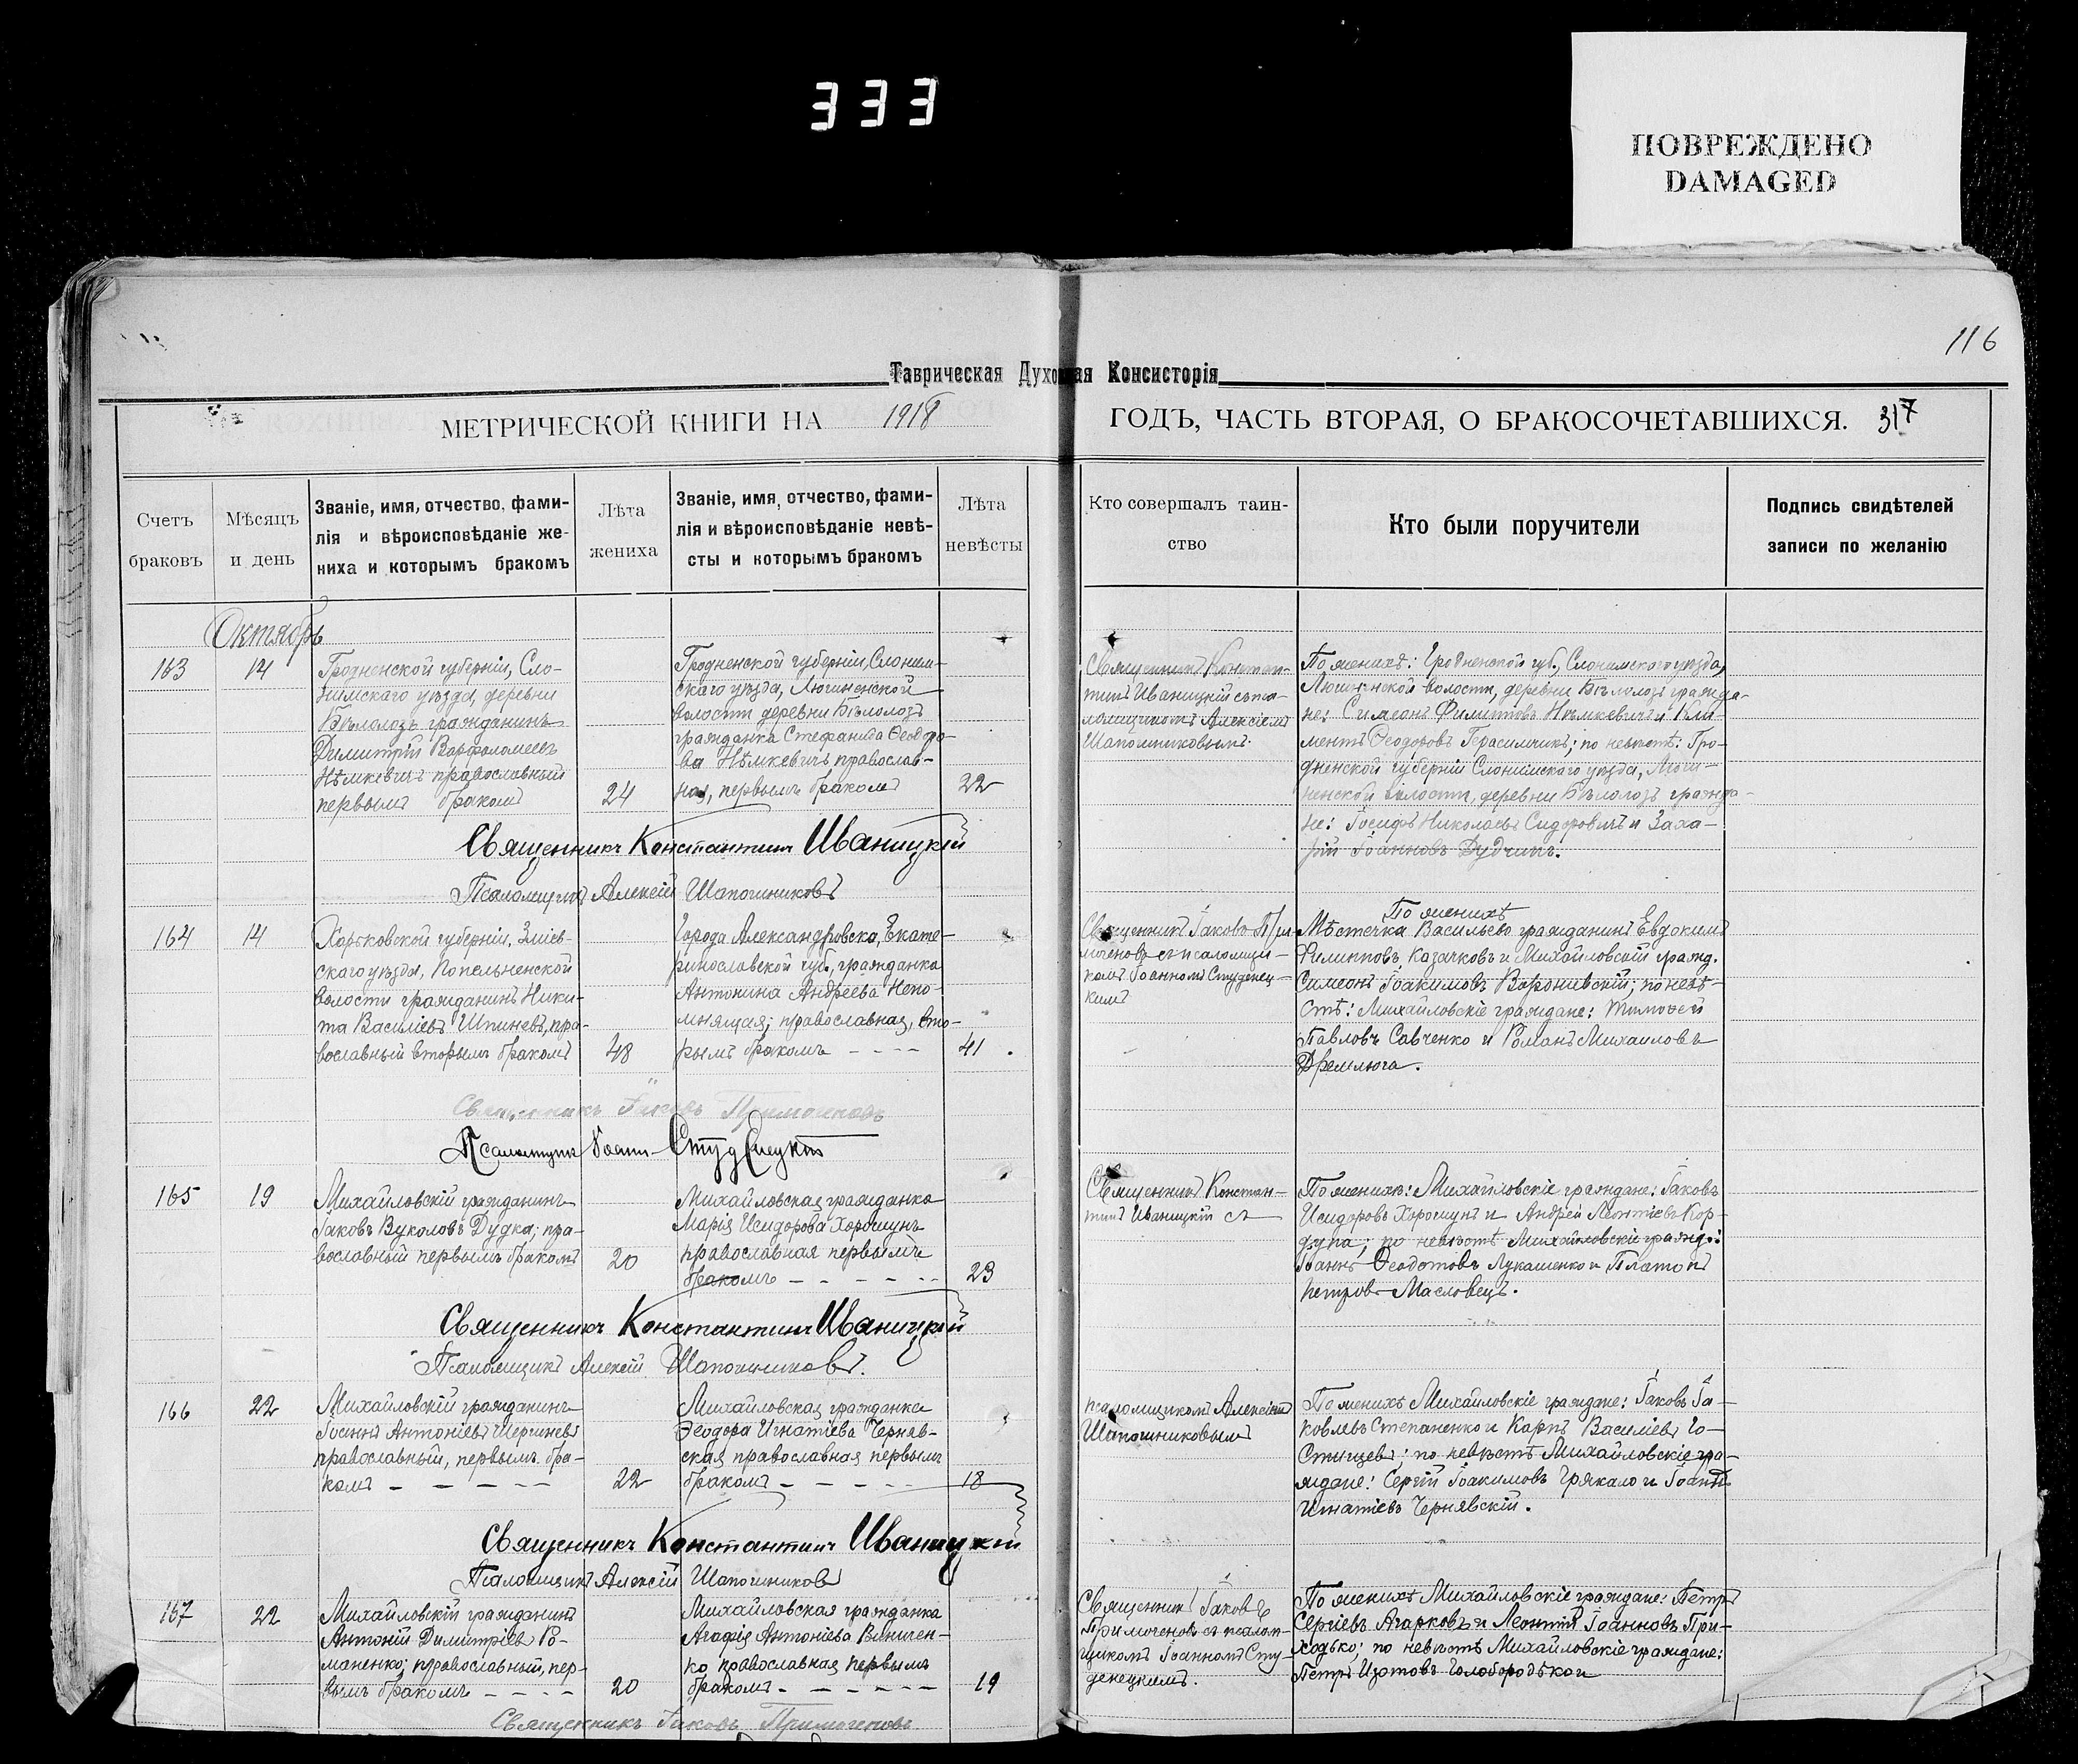 333
ПОВРЕЖДЕНО
DAMAGED
116
Таврическая Духовная Консисторія
МЕТРИЧЕСКОЙ КНИГИ НА 1918 ГОДЪ, ЧАСТЬ ВТОРАЯ, О БРАКОСОЧЕТАВШИХСЯ. 317
Счетъ
браковъ
Мѣсяцъ
и день
Званіе, имя, отчество, фами-
лія и вѣроисповѣданіе же-
ниха и которымъ бракомъ
Лѣта
жениха
Званіе, имя, отчество, фами-
лія и вѣроисповѣданіе невѣ-
сты и которымъ бракомъ
Лѣта
невѣсты
Кто совершалъ таин-
ство
Кто были поручители
Подпись свидѣтелей
записи по желанію
Октябрь
163
14
Гродненской губерніи, Сло-
нимскаго уѣзда, деревни
Бѣлолозъ гражданинъ
Димитрій Варфоломеевъ
Нѣмкевичъ православный
первымъ бракомъ
24
Гродненской губерніи, Слоним-
скаго уѣзда,
волости деревни Бѣлолозъ
гражданка Стефанида Ѳеодоро-
ва Нѣмкевичъ, православ-
ная, первымъ бракомъ
22
Священникъ Констан-
тинъ Иваницкій съ пса-
ломщикомъ Алексіемъ
Шапошниковымъ.
По женихѣ: Гродненской губ., Слонимскаго уѣзда,
волости, деревни Бѣлолозъ гражда-
не: Симеонъ Филипповъ Нѣмкевичъ и Кли-
ментъ Ѳеодоровъ Герасимчикъ; по невѣстѣ: Гро-
дненской губерніи Слонимскаго уѣзда,
волости, деревни Бѣлолозъ гражда-
не: Іосифъ Николаевъ Сидоровичъ и Заха-
рій Іоанновъ Дудчикъ.
Священникъ Константинъ Иваницкій
Псаломщикъ Алексій Шапошниковъ
164
14
Харьковской губерніи, Зміев-
скаго уѣзда, Попельненской
волости гражданинъ Ники-
та Василіевъ Шпиневъ, пра-
вославный вторымъ бракомъ
48
Города Александровска, Екате-
ринославской губ., гражданка
Антонина Андреева Непо-
мнящая; православная, вто-
рымъ бракомъ - - - -
41
Священникъ Іаковъ При-
моченовъ съ псаломщи-
комъ Іоанномъ Студенец-
кимъ
По женихѣ
Мѣстечка Васильево гражданинъ Евдокимъ
Филипповъ Казачковъ и Михайловскій гражд.
Симеонъ Іоакимовъ Воронивскій; по невѣ-
стѣ: Михайловскіе граждане: Тимоѳей
Павловъ Савченко и Романъ Михаиловъ
Дремлюга.
Священникъ Іаковъ Примоченовъ
Псаломщикъ Іоаннъ Студенецкій
165
19
Михайловскій гражданинъ
Іаковъ Вуколовъ Дудка; пра-
вославный первымъ бракомъ
20
Михайловская гражданка
Марія Исидорова Хорошунъ
православная первымъ
бракомъ - - - - - -
23
Священникъ Констан-
тинъ Иваницкій съ
По женихѣ: Михайловскіе граждане: Іаковъ
Исидоровъ Хорошунъ и Андрей Леонтіевъ Кор-
дупа; по невѣстѣ Михайловскіе гражд.:
Іоаннъ Ѳеодотовъ Лукашенко и Платонъ
Петровъ Масловецъ.
Священникъ Константинъ Иваницкій
Псаломщикъ Алексій Шапошниковъ.
166
22
Михайловскій гражданинъ
Іоаннъ Антоніевъ Шершневъ
православный, первымъ бра-
комъ - - - - -
22
Михайловская гражданка
Ѳеодора Игнатіева Черняв-
ская православная первымъ
бракомъ - - - - -
18
псаломщикомъ Алексіемъ
Шапошниковымъ
По женихѣ Михайловскіе граждане: Іаковъ Іа-
ковлевъ Степаненко и Карпъ Василіевъ Го-
стищевъ; по невѣстѣ Михайловскіе гра-
ждане: Сергій Іоакимовъ Грякало и Іоаннъ
Игнатіевъ Чернявскій.
Священникъ Константинъ Иваницкій
Псаломщикъ Алексій Шапошниковъ
167
22
Михайловскій гражданинъ
Антоній Димитріевъ Ро-
маненко; православный, пер-
вымъ бракомъ - - - -
20
Михайловская гражданка
Агафія Антоніева Виничен-
ко православная первымъ
бракомъ - - - - - -
19
Священникъ Іаковъ
Примоченовъ съ псалом-
щикомъ Іоанномъ Сту-
денецкимъ.
По женихѣ Михайловскіе граждане: Петръ
Сергіевъ Агарковъ и Леонтій Іоанновъ При-
ходько; по невѣстѣ Михайловскіе граждане:
Петръ Изотовъ Голобородько и
Священникъ Іаковъ Примоченовъ